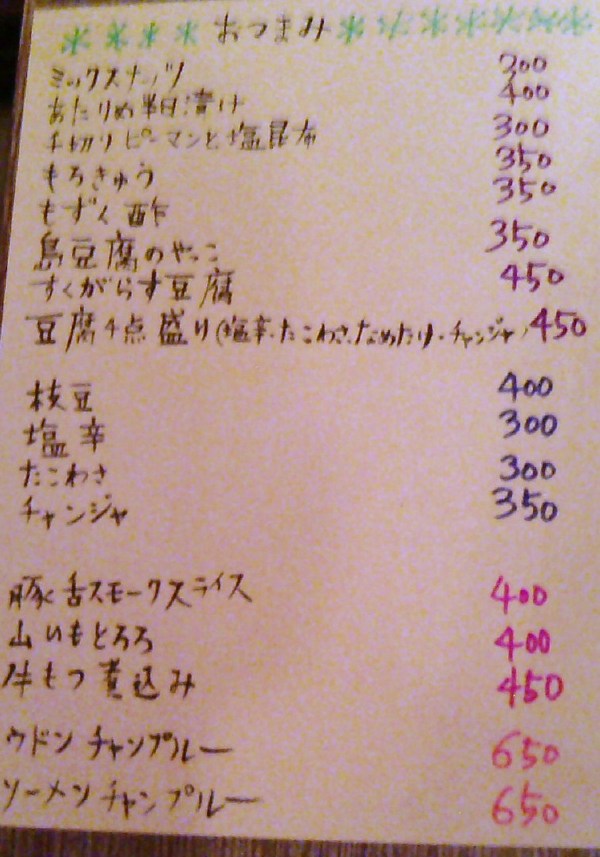 おつまみ
ミックスナッツ 300
あたりめ 漬け 400
千切りピーマンと塩昆布 300
もろきゅう 350
もずく酢 350
島豆腐のやっこ 350
すくがらす豆腐 450
豆腐4点盛り(塩辛・たこわさ・なめたけ・チャンジャ) 450
枝豆 400
塩辛 300
たこわさ 300
チャンジャ 350
豚舌スモークスライス 400
山いもとろろ 400
牛もつ煮込み 450
ウドンチャンプルー 650
ソーメンチャンプルー 650